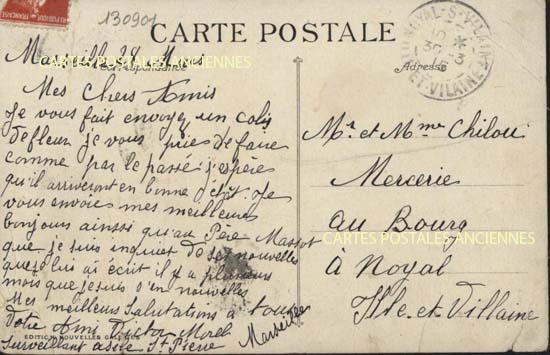 130901
CARTE POSTALE
Correspondance
Adresse
NOYAL-S-VILAINE
ET-VILAINE
Marseille 28 Mars
Mes chers Amis
Je vous fait envoyez un colis
defleur je vous pries de faire
comme par le passé j'espères
qu'il arriveront en bonne état. Je
vous envoies mes meilleurs
bonjours ainsi qu'au Père Massot
que je suis inquiet de ses nouvelles
que je lui ai écrit il y a plusieurs
mois que je suis s'en nouvelles
Mes meilleurs Salutations à tous
Votre Ami Victor Morel
Surveillant asile St Pierre
Marseille
Mr et Mme Chilou
Mercerie
au Bourg
à Noyal
Ille et Villaine
CARTES POSTALES ANCIENNES
CARTES POSTALES ANCIENNES
EDITION NOUVELLES GALERIES